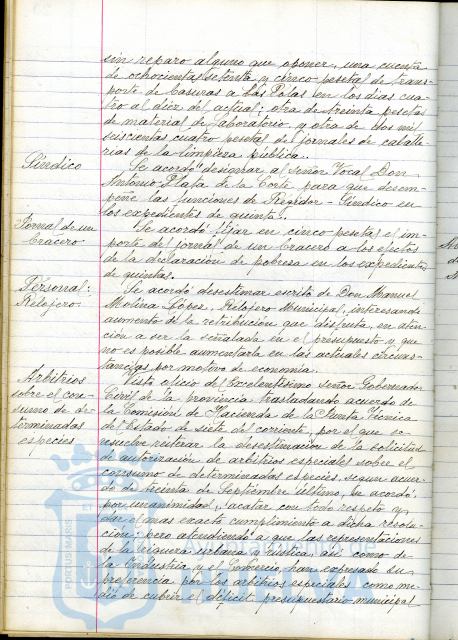 sin reparo alguno que oponer, una cuenta
de ochocientas setenta y cinco pesetas de trans-
porte de basuras a Las Polas en los días cua-
tro al diez del actual; otra de treinta pesetas
de material de laboratorio, y otra de dos mil
seiscientas cuatro pesetas de jornales de caballe-
rías de la limpieza pública.
Síndico
Se acordó designar al Señor Vocal Don
Antonio Plaza de la Corte para que desem-
peñe las funciones de Regidor-Síndico en
los expedientes de quintas.
Jornal de un
bracero
Se acordó fijar en cinco pesetas el im-
porte del jornal de un bracero a los efectos
de la declaración de pobreza en los expedientes
de quintas.
Personal:
Relojero
Se acordó desestimar escrito de Don Manuel
Molina López, Relojero Municipal, interesando
aumento de la retribución que disfruta, en aten-
ción a ser la señalada en el presupuesto y que
no es posible aumentarla en las actuales circuns-
tancias por motivo de economía.
Arbitrios
sobre el con-
sumo de de-
terminadas
especies
Visto oficio del Excelentísimo Señor Gobernador
Civil de la provincia trasladando acuerdo de
la Comisión de Hacienda de la Junta Técnica
del Estado de siete del corriente, por el que se
resuelve reiterar la desestimación de la solicitud
de autorización de arbitrios especiales sobre el
consumo de determinadas especies, según acuer-
do de treinta de Septiembre último, se acordó
por unanimidad, acatar con todo respeto y
dar el mas exacto cumplimiento a dicha resolu-
ción; pero atendiendo a que las representaciones
de la riqueza urbana y rústica, así como de
la Industria y el Comercio, han expresado su
preferencia por los arbitrios especiales como me-
dio de cubrir el déficit presupuestario municipal